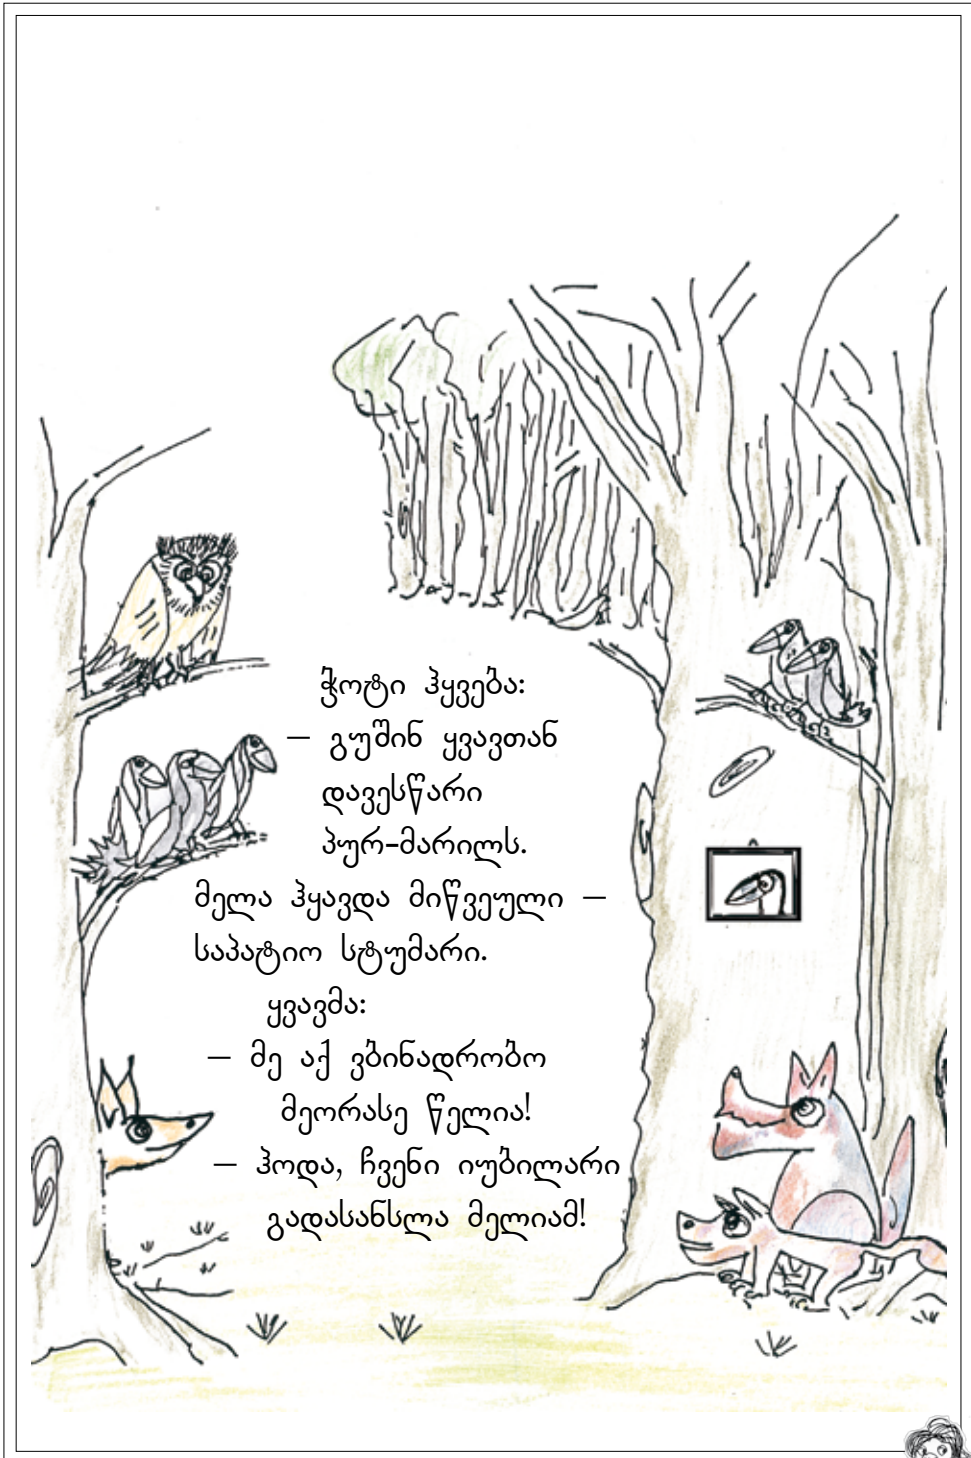 ჭოტი ჰყვება:
– გუშინ ყვავთან
დავესწარი
პურ-მარილს.
მელა ჰყავდა მიწვეული –
საპატიო სტუმარი.
ყვავმა:
– მე აქ ვბინადრობო
მეორასე წელია!
– ჰოდა, ჩვენი იუბილარი
გადასანსლა მელიამ!